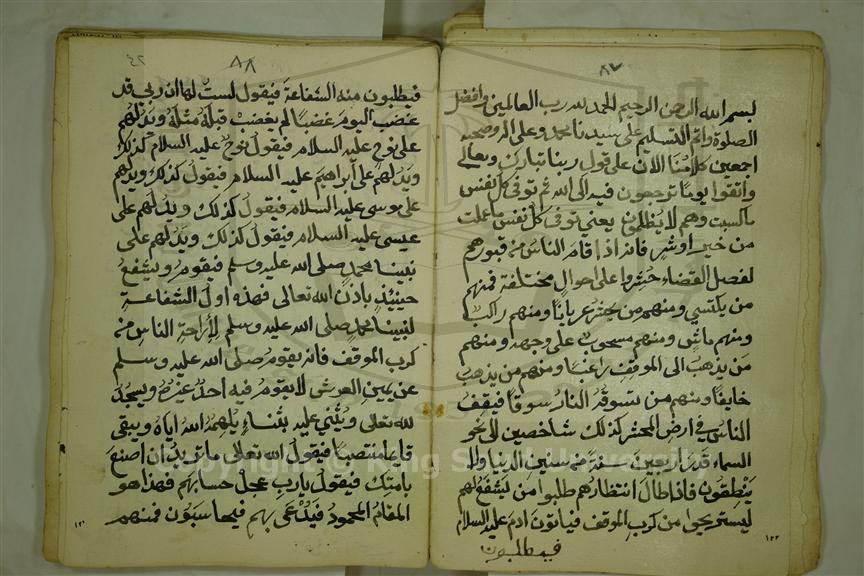 ٨٧
بسم الله الرحمن الرحيم الحمد لله رب العالمين وافضل
الصلوة واتم التسليم على سيدنا محمد وعلى اله وصحبه
اجمعين كلامُنا الان على قول ربنا تبارك وتعالى
واتقوا يوما ترجعون فيه الى الله ثم توفى كل نفس
ما كسبت وهم لا يُظلمون يعني توفى كل نفس ما عملت
من خير او شر فانه اذا قام الناس من قبورهم
لفصل القضاء حُشِروا على احوال مختلفة فمنهم
من يكتسي ومنهم من يحشر عريانا ومنهم راكب
ومنهم ماشي ومنهم مسحوب على وجهه ومنهم
مَن يذهبُ الى الموقف راغبا ومنهم من يذهب
خايفا ومنهم من تسوقه النار سوقا فيقف
الناس في ارض المحشر كذلك شاخصين الى نحو
السماء قدر اربعين سنة من سنين الدنيا ولا
ينطقون فاذا طال انتظارهم طلبوا من يشفع لهم
ليستريحوا من كرب الموقف فياتون ادم عليه السلام
فيطلبون
١٢٢
٨٨
٤٢
فيطلبون منه الشفاعة فيقول لستُ لها ان ربي قد
غضب اليوم غضبا لم يغضب قبله مثله ويدلهم
على نوح عليه السلام فيقول نوح عليه السلام كذلك
ويدلهم على ابراهيم عليه السلام فيقول كذلك ويدلهم
على موسى عليه السلام فيقول كذلك ويدلهم على
عيسى عليه السلام فيقول كذلك ويدلهم على
نبينا محمد صلى الله عليه وسلم فيقوم ويشفع
حينيذ باذن الله تعالى فهذه اول الشفاعة
لنبينا محمد صلى الله عليه وسلم لإراحة الناس من
كرب الموقف فانه يقوم صلى الله عليه وسلم
عن يمين العرش لا يقوم فيه احد غيره ويسجد
لله تعالى ويثني عليه بثناء يلهمه الله اياه ويبقى
قايما منتصبا فيقول الله تعالى ما تريد ان اصنع
بامتك فيقول يارب عجل حسابهم فهذا هو
المقام المحمود فيدعى بهم فيحاسبون فمنهم
١٢١
Copyright © King Saud University